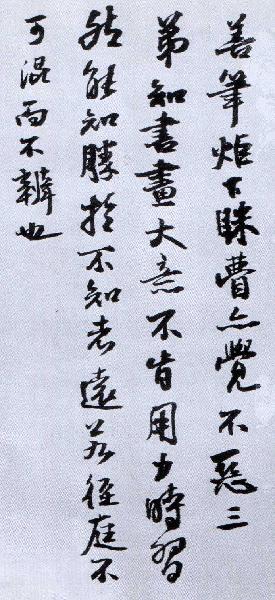 善筆炬下亦覺不惡三
弟知書畫大意不肯用力時習
然能知勝於不知者遠若徑庭不
可混而不辯也